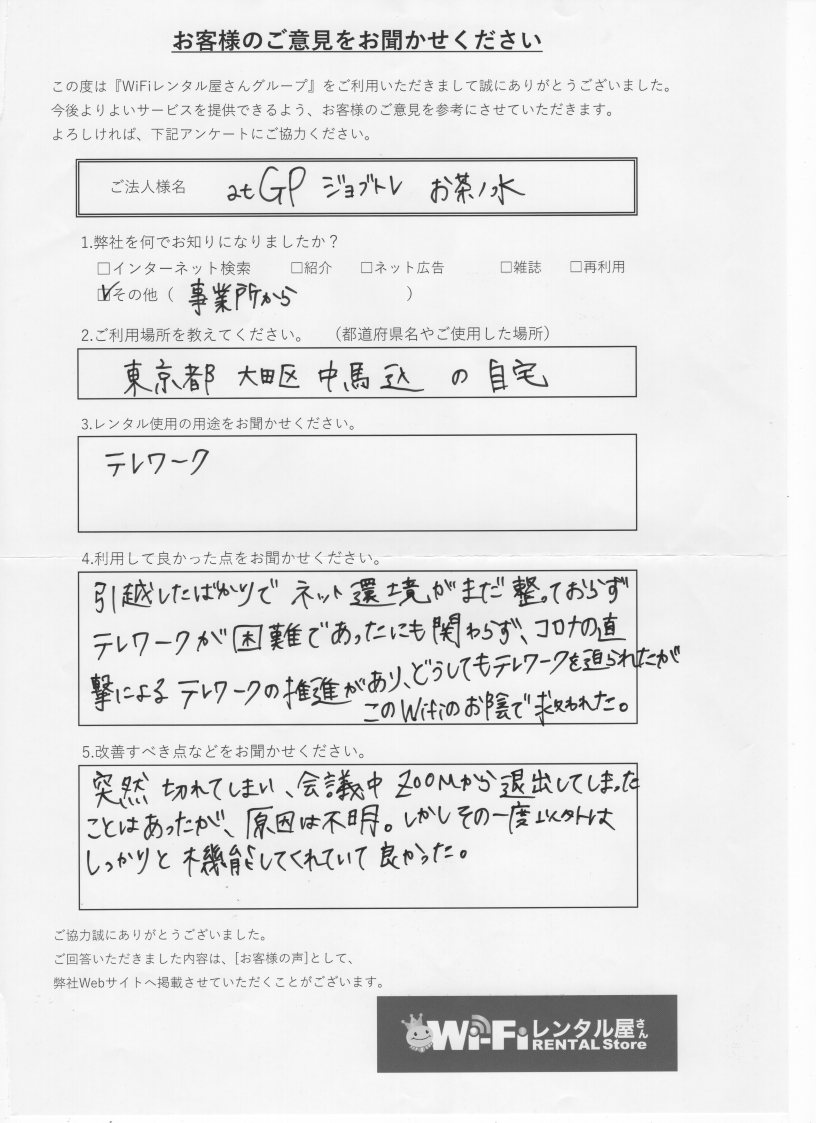 お客様のご意見をお聞かせください
この度は『WiFiレンタル屋さんグループ』をご利用いただきまして誠にありがとうございました。
今後よりよいサービスを提供できるよう、お客様のご意見を参考にさせていただきます。
よろしければ、下記アンケートにご協力ください。
ご法人様名 atGP ジョブトレ お茶ノ水
1.弊社を何でお知りになりましたか？
□インターネット検索 □紹介 □ネット広告 □雑誌 □再利用
☑その他（ 事業所から ）
2.ご利用場所を教えてください。 （都道府県名やご使用した場所）
東京都 大田区 中馬込 の 自宅
3.レンタル使用の用途をお聞かせください。
テレワーク
4.利用して良かった点をお聞かせください。
引越したばかりで ネット環境がまだ整っておらず
テレワークが困難であったにも関わらず、コロナの直
撃による テレワークの推進があり、どうしてもテレワークを迫られたが
このWifiのお陰で救われた。
5.改善すべき点などをお聞かせください。
突然 切れてしまい、会議中 ZOOMから退出してしまった
ことはあったが、原因は不明。しかしその一度以外は
しっかりと 機能してくれていて 良かった。
ご協力誠にありがとうございました。
ご回答いただきました内容は、[お客様の声]として、
弊社Webサイトへ掲載させていただくことがございます。
Wi-Fiレンタル屋さん
RENTAL Store